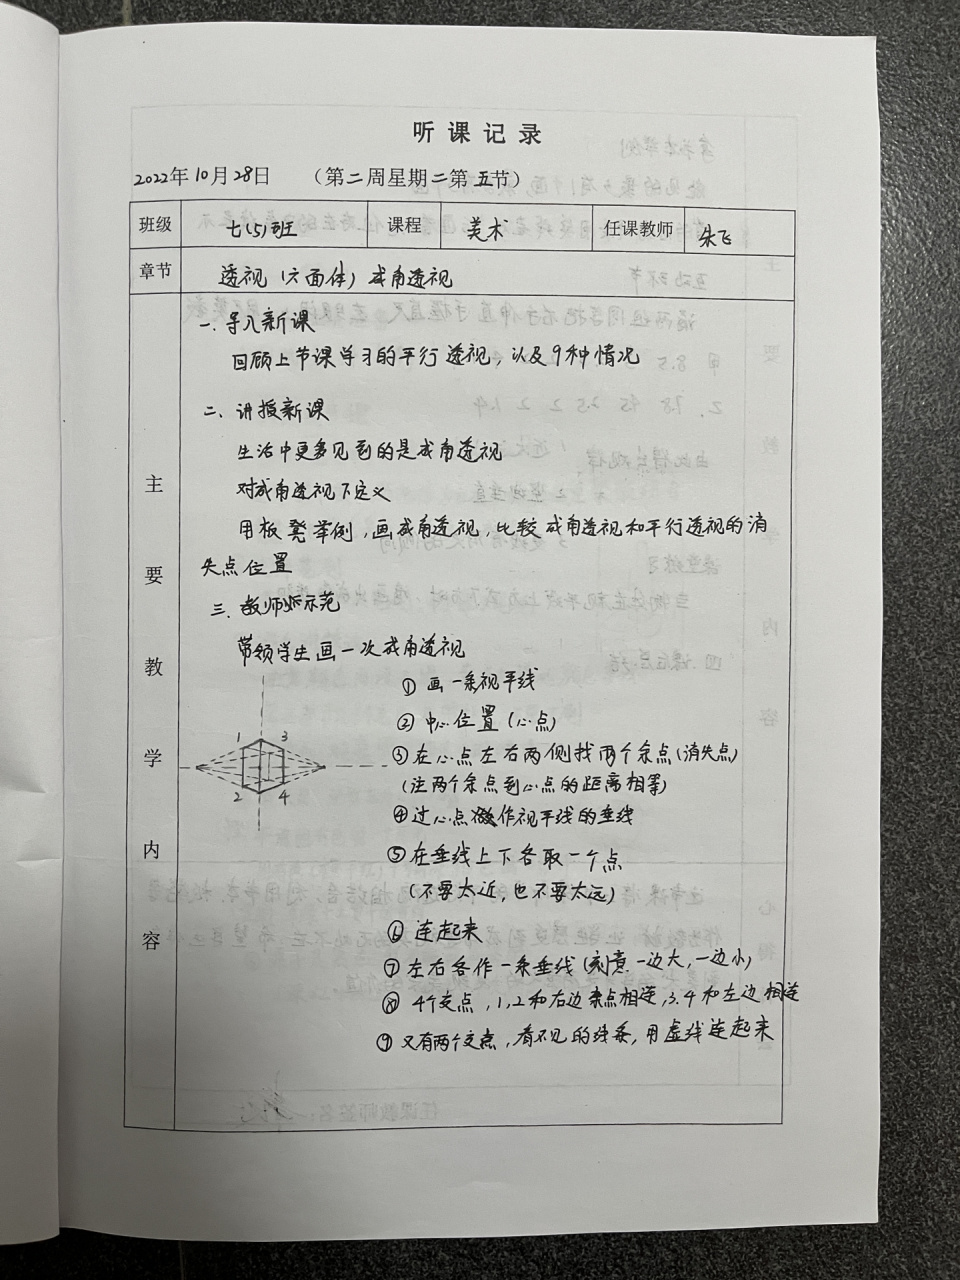 听课记录
2022年10月28日 （第二周星期二第五节）
班级 七(5)班 课程 美术 任课教师 朱飞
章节 透视（六面体）成角透视
主要教学内容
一、导入新课
回顾上节课学习的平行透视，以及9种情况
二、讲授新课
生活中更多见到的是成角透视
对成角透视下定义
用板凳举例，画成角透视，比较成角透视和平行透视的消
失点位置
三、教师示范
带领学生画一次成角透视
① 画一条视平线
② 中心位置（心点）
③ 在心点左右两侧找两个余点（消失点）
（注两个余点到心点的距离相等）
④ 过心点作视平线的垂线
⑤ 在垂线上下各取一个点
（不要太近，也不要太远）
⑥ 连起来
⑦ 左右各作一条垂线（刻意一边大，一边小）
⑧ 4个交点，1,2和右边余点相连，3.4和左边相连
⑨ 又有两个交点，看不见的线条，用虚线连起来
1 3
2 4